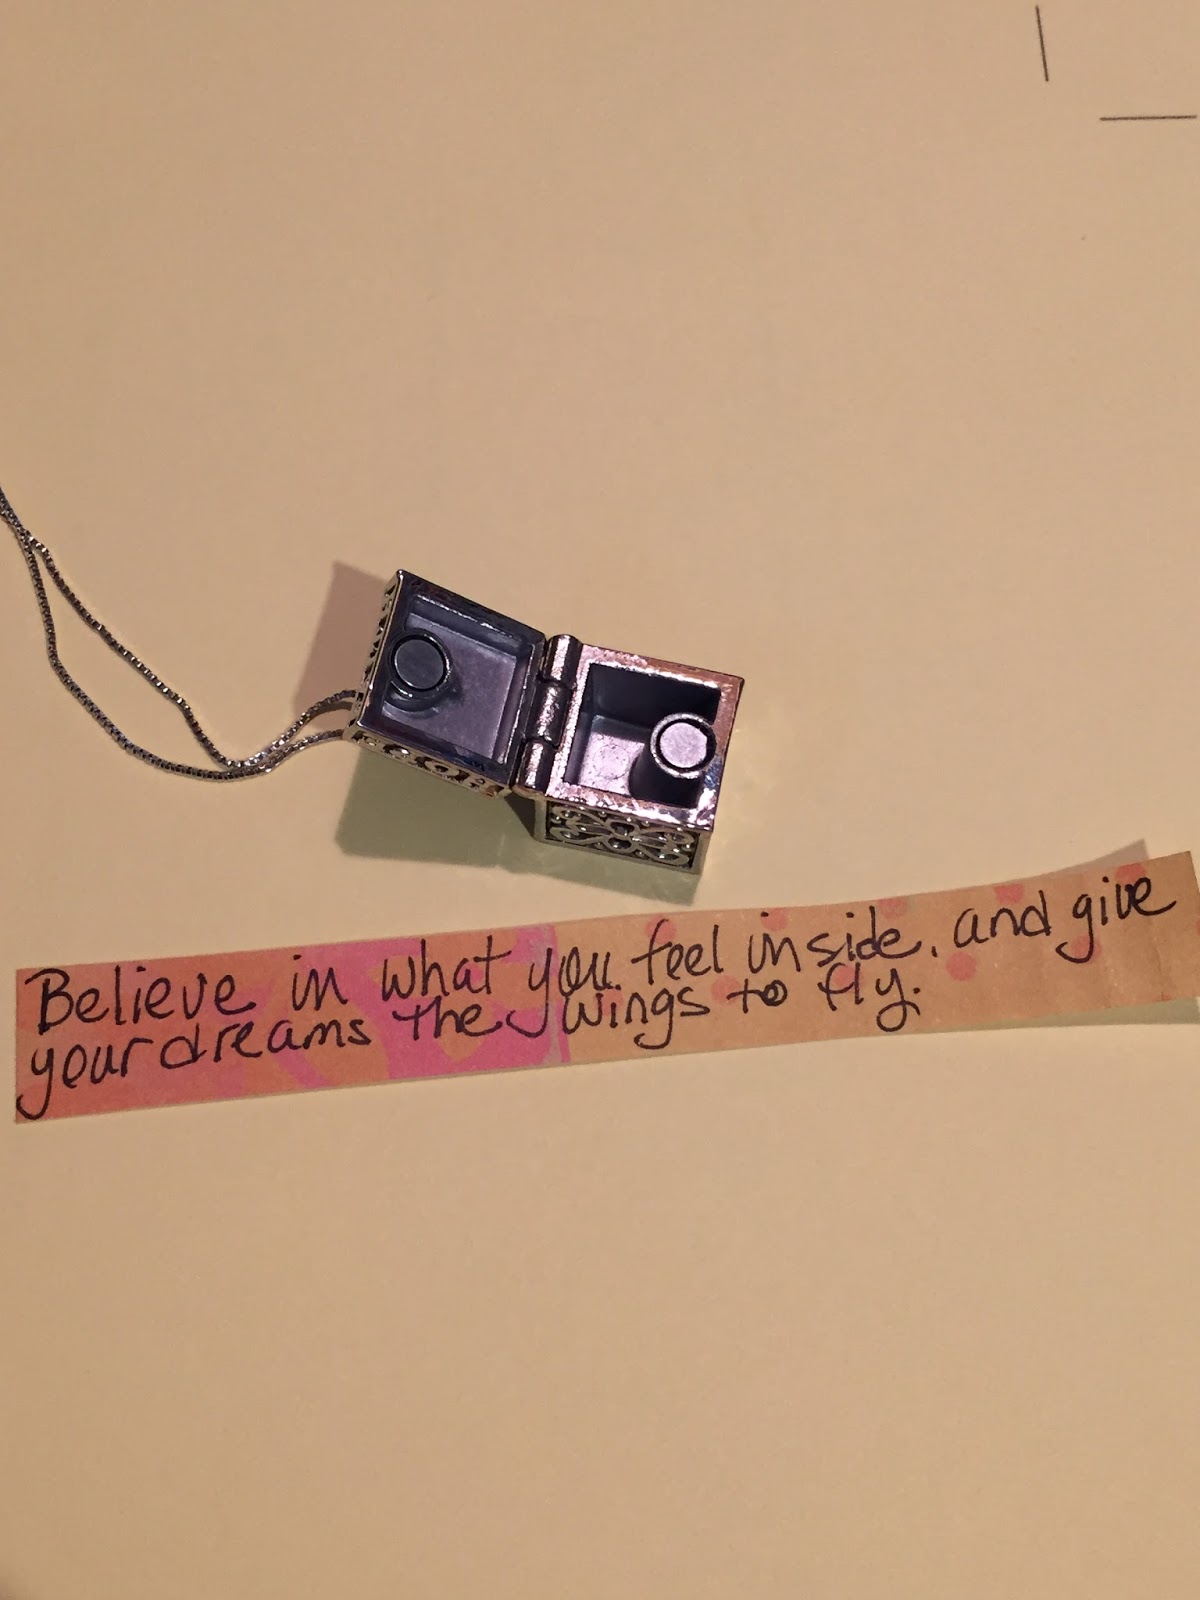 Believe in what you feel inside, and give
your dreams the wings to fly.